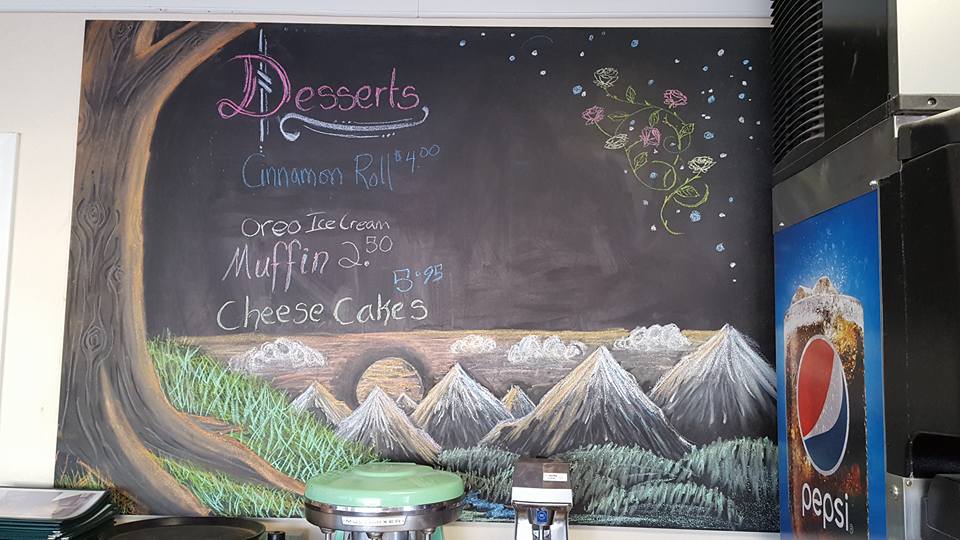 Desserts
Cinnamon Roll $4.00
Oreo Ice Cream
Muffin 2.50
5.95
Cheese Cakes
MULTIMIXER
pepsi